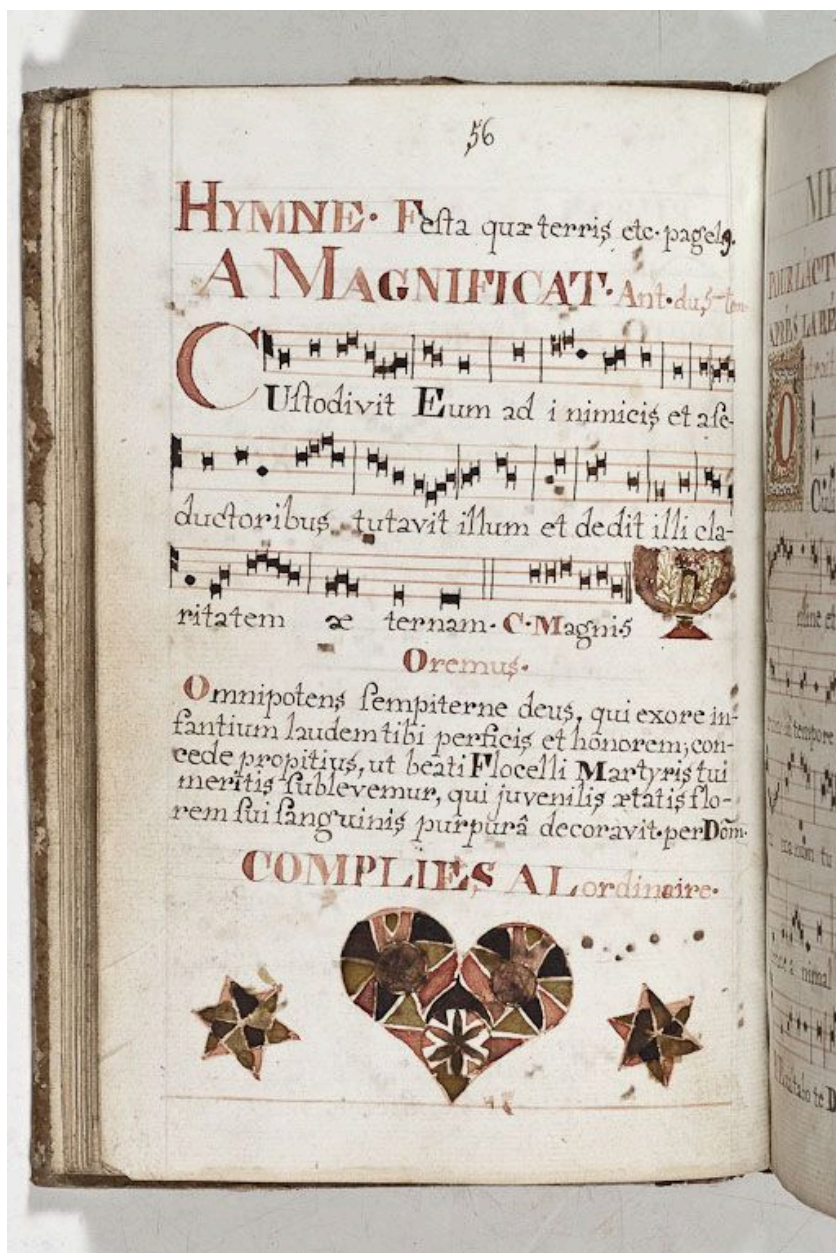 56
HYMNE. Festa quæ terris etc. page
A MAGNIFICAT. Ant. du 5
CUstodivit Eum ad i nimicis et a se-
ductoribus tutavit illum et dedit illi cla-
ritatem æ ternam. C. Magnis
Oremus.
Omnipotens sempiterne deus, qui ex ore in-
fantium laudem tibi perficis et honorem, con-
cede propitius, ut beati Flocelli Martyris tui
meritis sublevemur, qui juvenilis ætatis flo-
rem sui sanguinis purpurâ decoravit. per Dom̄.
COMPLIES A L ordinaire.
POUR L'ACT
APRÈS LA BE
O
tempore